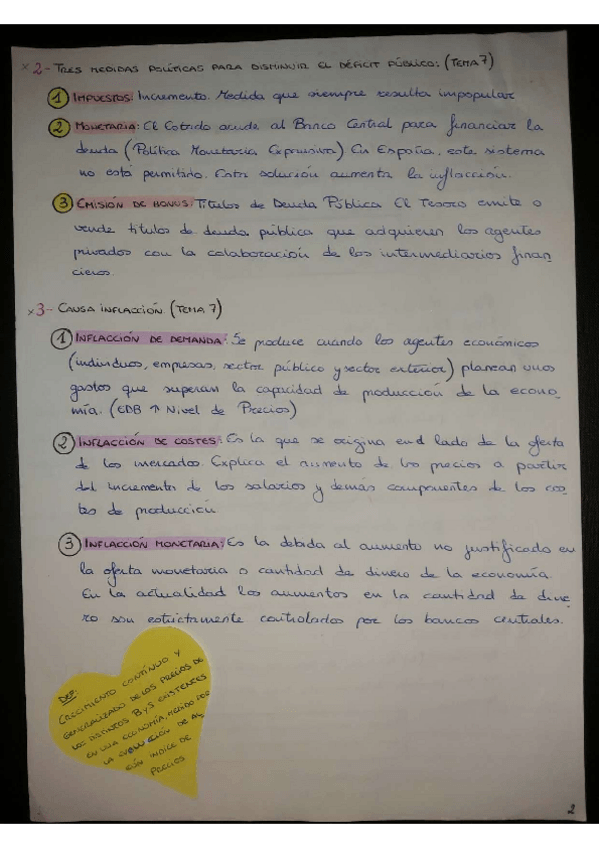 x 2- TRES MEDIDAS POLÍTICAS PARA DISMINUIR EL DÉFICIT PÚBLICO: (TEMA 7)
1 IMPUESTOS: Incremento. Medida que siempre resulta impopular
2 MONETARIA: El Estado acude al Banco Central para financiar la
deuda (Política Monetaria Expansiva) En España, este sistema
no está permitido. Esta solución aumenta la inflacción.
3 EMISIÓN DE BONUS: Títulos de Deuda Pública El Tesoro emite o
vende títulos de deuda pública que adquieren los agentes
privados con la colaboración de los intermediarios finan-
cieros.
x 3- CAUSA INFLACCIÓN. (TEMA 7)
1 INFLACCIÓN DE DEMANDA: Se produce cuando los agentes económicos
(individuos, empresas, sector público y sector exterior) planean unos
gastos que superan la capacidad de producción de la econo-
mía. (EDB ↑ Nivel de Precios)
2 INFLACCIÓN DE COSTES: Es la que se origina en el lado de la oferta
de los mercados. Explica el aumento de los precios a partir
del incremento de los salarios y demás componentes de los cos-
tes de producción
3 INFLACCIÓN MONETARIA: Es la debida al aumento no justificado en
la oferta monetaria o cantidad de dinero de la economía.
En la actualidad los aumentos en la cantidad de dine-
ro son estrictamente controlados por los bancos centrales.
DEF:
CRECIMIENTO CONTÍNUO Y
GENERALIZADO DE LOS PRECIOS DE
LOS DISTINTOS B y S EXISTENTES
EN UNA ECONOMÍA, MEDIDO POR
LA EVOLUCIÓN DE AL
GÚN ÍNDICE DE
PRECIOS
2